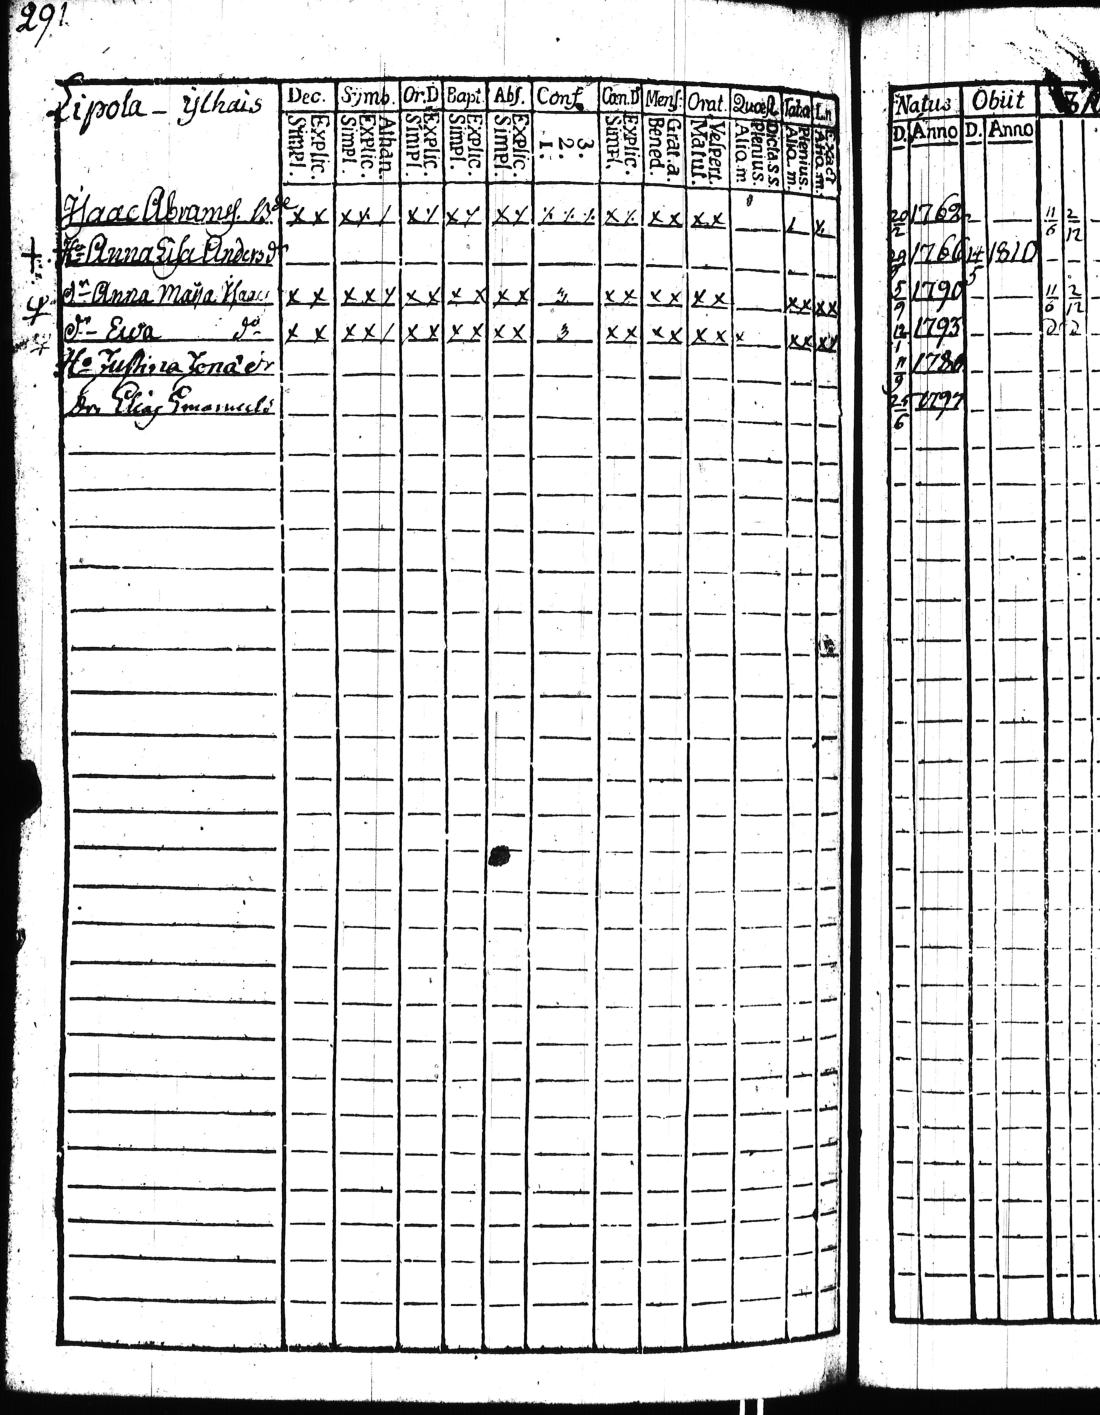 291
Lipola - ylhais Dec. Symb. Or.D Bapt. Abs. Conf. Cœn.D Mens: Orat. Quœst. Natus Obiit
Simpl. Explic. Simpl. Explic. Athan. Simpl. Explic. Simpl. Explic. Simpl. Explic. 1. 2. 3. Simpl. Explic. Bened. Grat.a. Matut. Vespert. Alio.m. Plenius. Dicta.s.s. Alio.m. Plenius. Alio.m. Exact D. Anno D. Anno
Isaac Abrams. x x x x / x y x y x y x x x x x x 20/2 1762 11/6 2/12
Ho Anna Lisa Anders dr 1766 14/5 1810
dr Anna Maija Isaac x x x x y x x x x x x 3 x x x x x x x x x x 5/9 1790 11/6 2/12
dr Ewa do x x x x / x x x x x x 3 x x x x x x x x x x x 1793 2 2
Ho Justina Jona dr 11/9 1786
Dr Elias Emanuels 25/6 1797